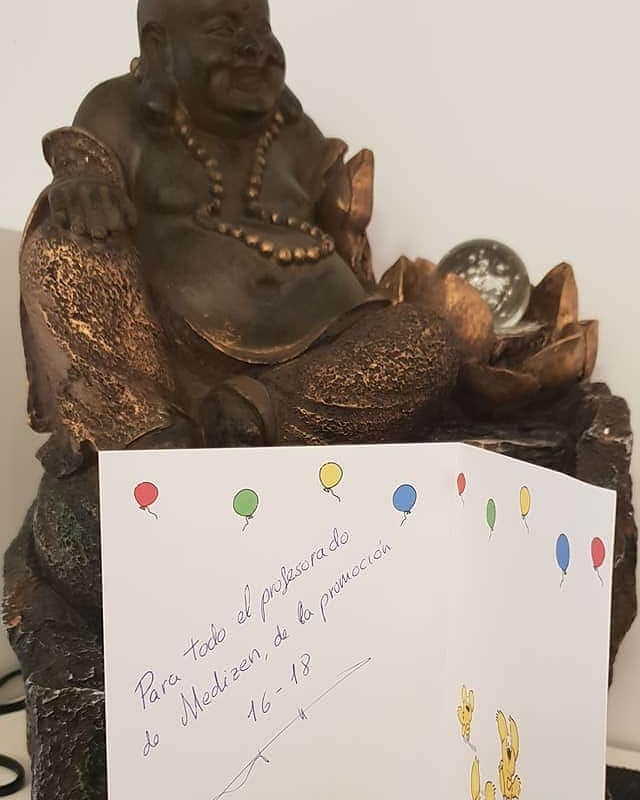 Para todo el profesorado
de Medizen, de la promoción
16-18